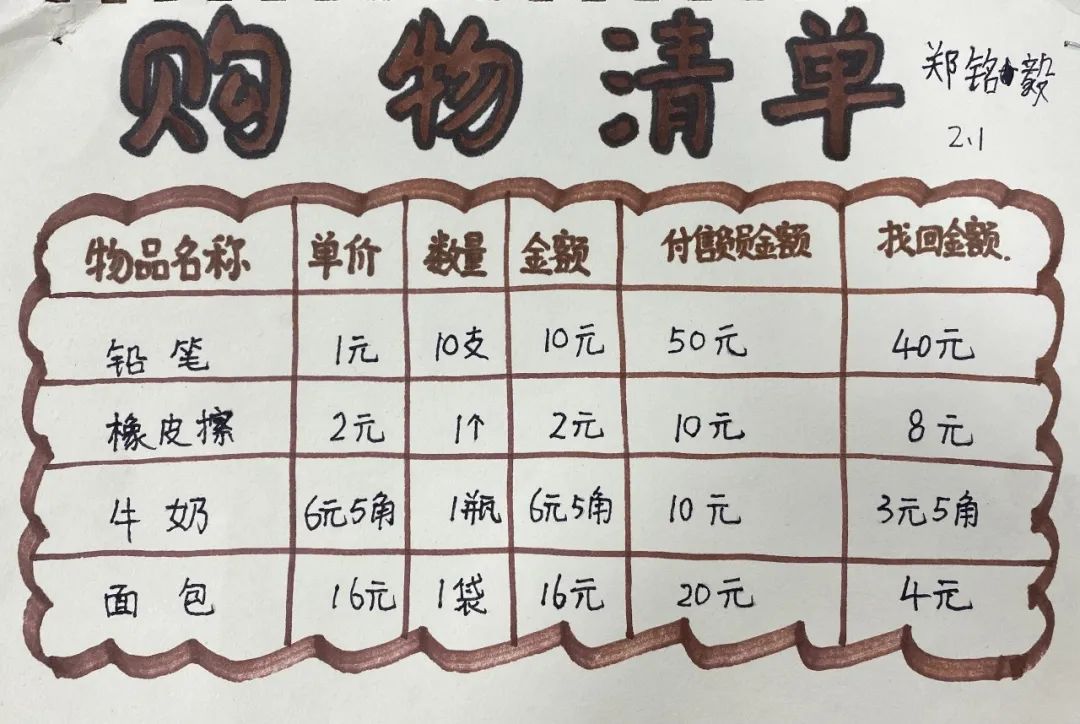 购物清单
郑铭毅
2.1
物品名称 单价 数量 金额 付的金额 找回金额.
铅笔 1元 10支 10元 50元 40元
橡皮擦 2元 1个 2元 10元 8元
牛奶 6元5角 1瓶 6元5角 10元 3元5角
面包 16元 1袋 16元 20元 4元